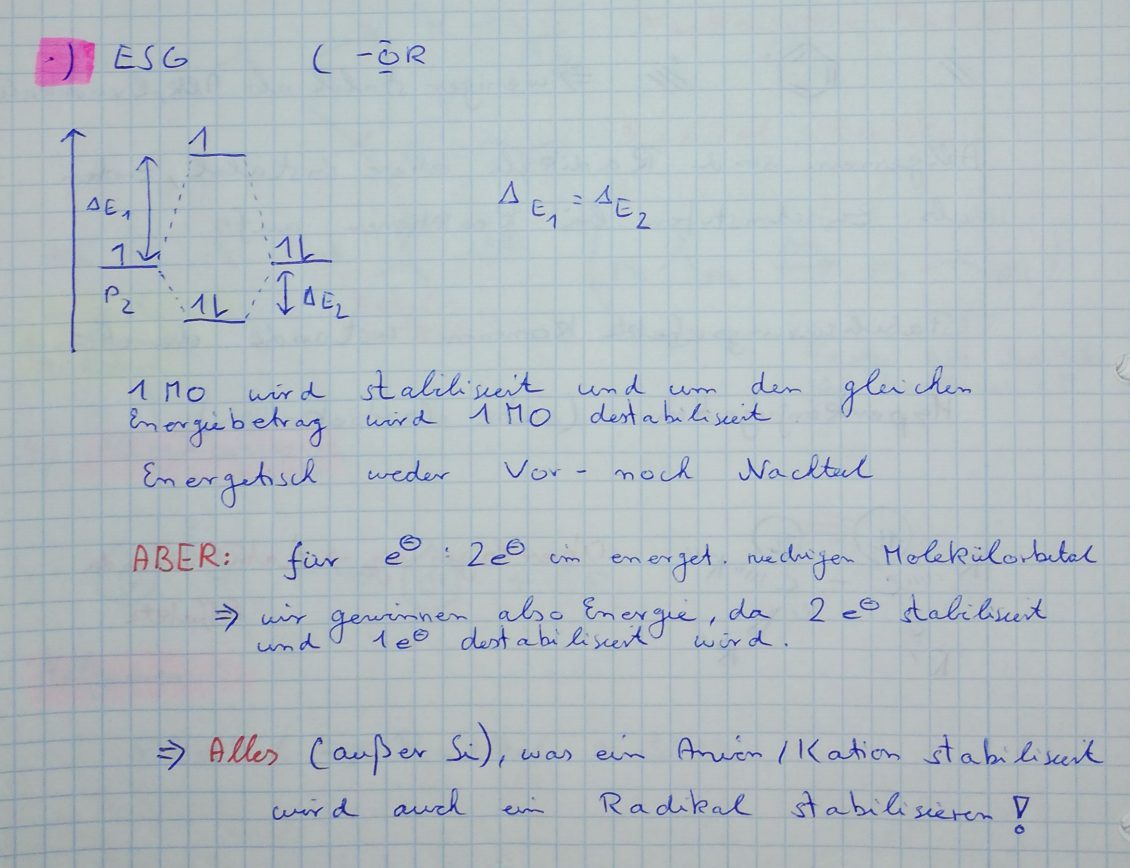 ·) ESG ( -ŌR
1
ΔE1
ΔE1 = ΔE2
1 1L
P2 1L ΔE2
1 MO wird stabilisiert und um den gleichen
Energiebetrag wird 1 MO destabilisiert
Energetisch weder Vor- noch Nachteil
ABER: für e⊖ : 2e⊖ im energet. niedrigen Molekülorbital
⇒ wir gewinnen also Energie, da 2 e⊖ stabilisiert
und 1e⊖ destabilisiert wird.
⇒ Alles (außer Si), was ein Anion / Kation stabilisiert
wird auch ein Radikal stabilisieren!